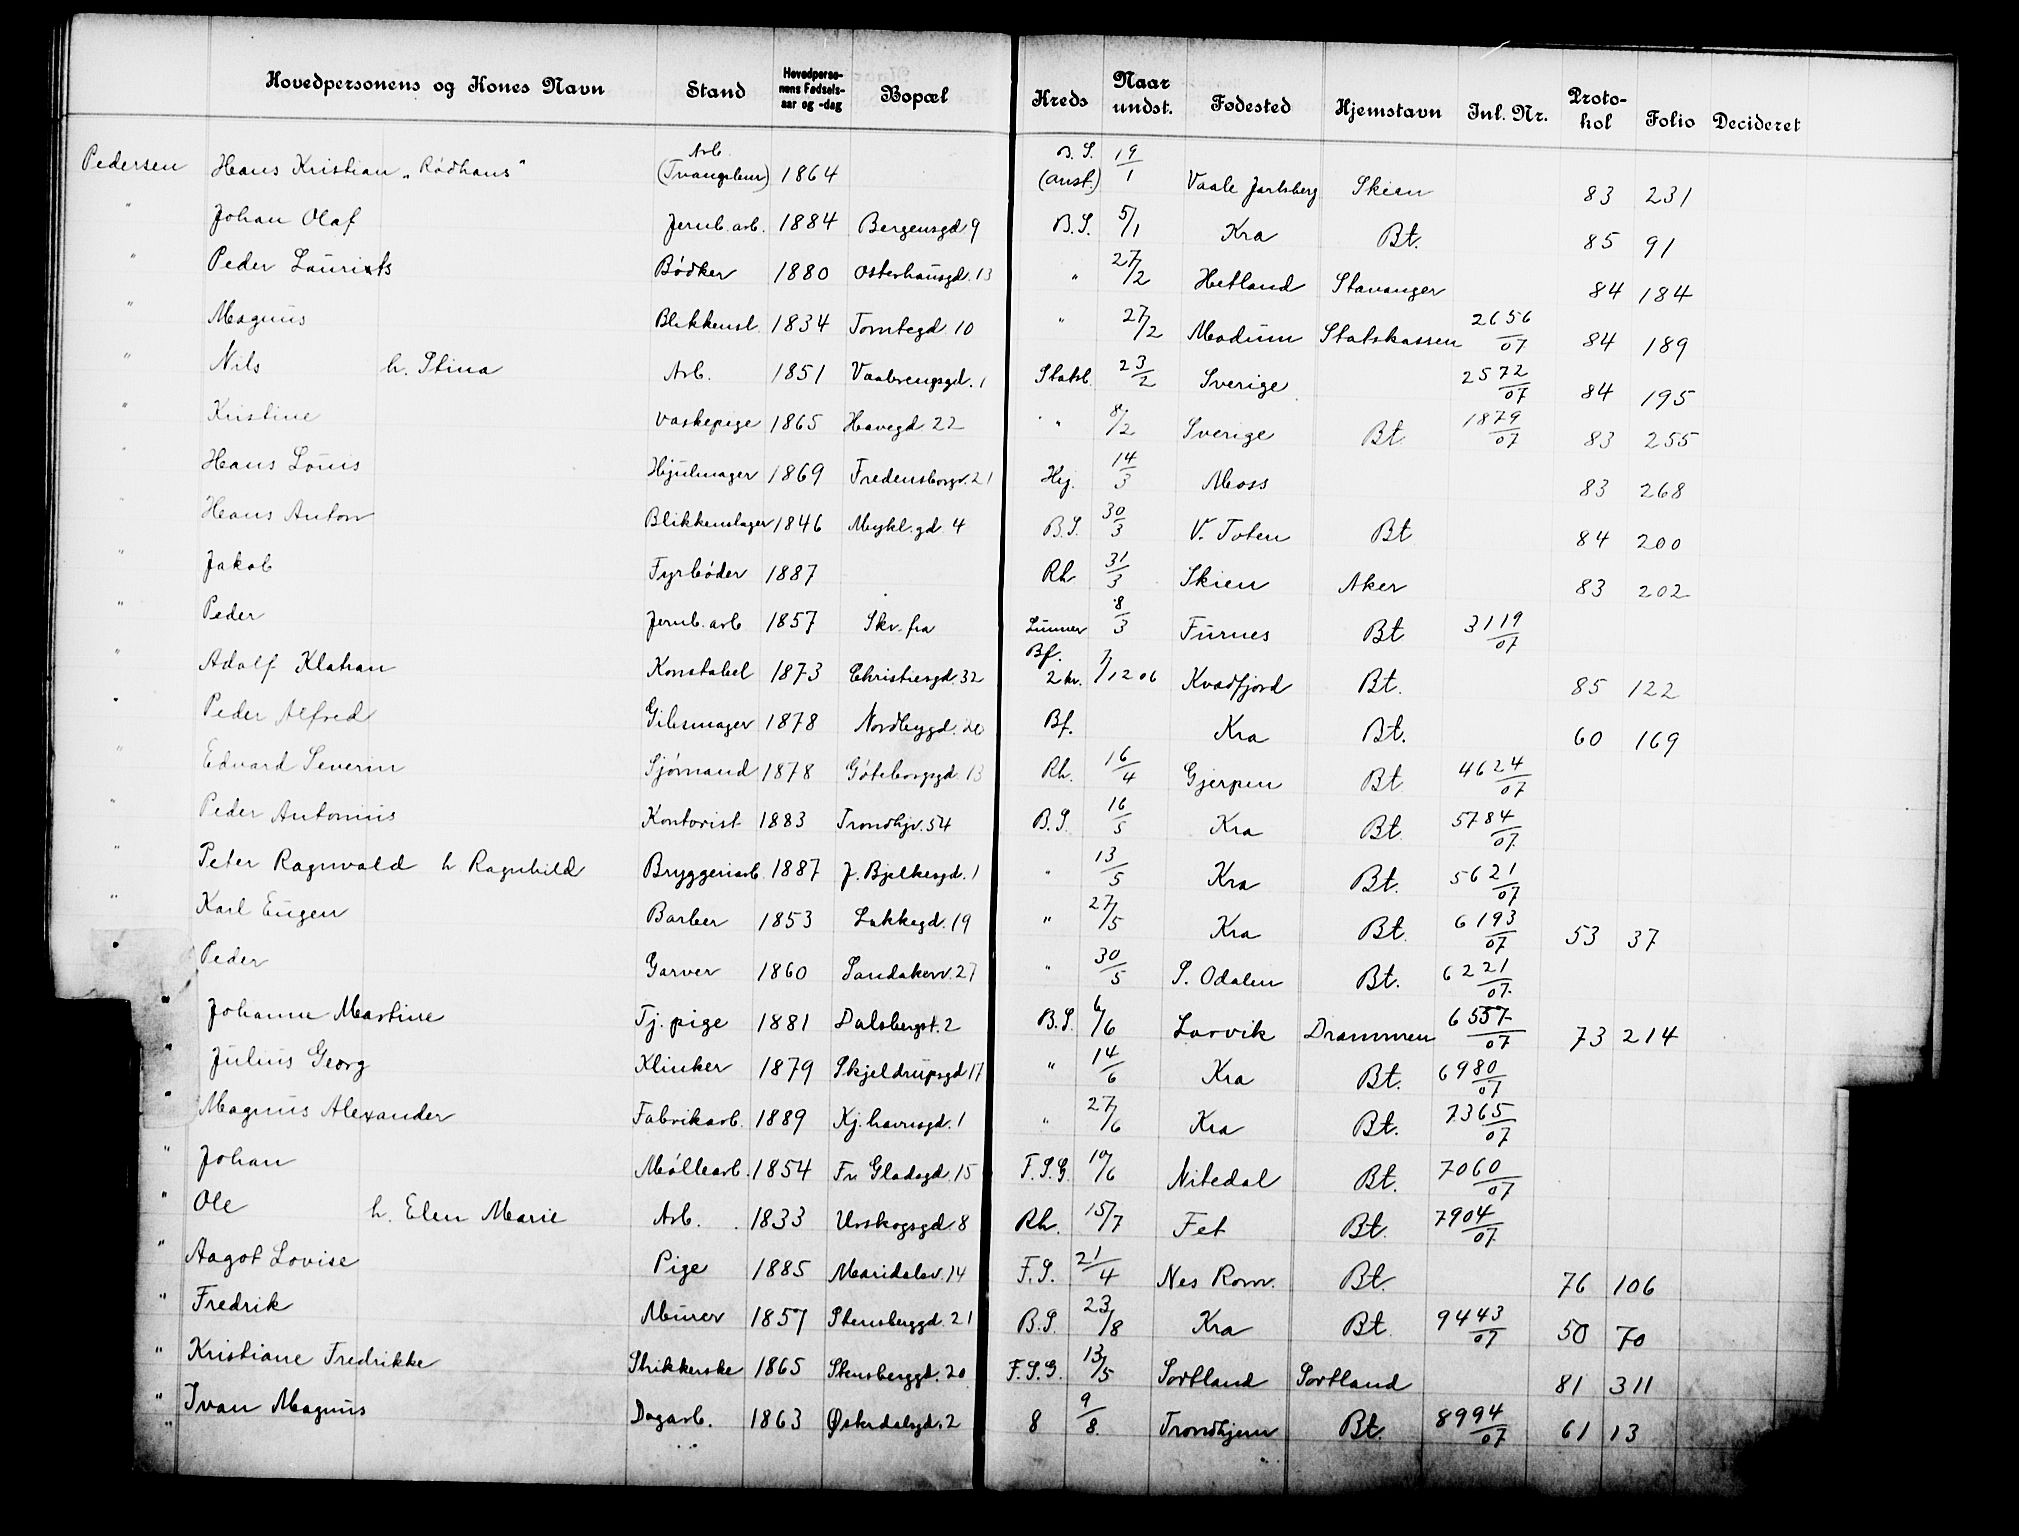 Hovedpersonens og Kones Navn Stand Hovedperso-nens Fødsels-aar og -dag Bopæl Kreds Naar undst. Fødested Hjemstavn Inl. Nr. Proto-kol Folio Decideret
Pedersen Hans Kristian „Rødhans" Arb. (Tvangslem) 1864 B.S. (Anst.) 19/1 Vaale Jarlsberg Skien 83 231
" Johan Olaf Jernb. arb. 1884 Bergensgd 9 B.S. 5/1 Kra Bt. 85 91
" Peder Laurits Bødker 1880 Osterhausgd. 13 " 27/2 Hetland Stavanger 84 184
" Magnus Blikkensl. 1834 Tomtegd 10 " 27/2 Modum Statskassen 2656/07 84 189
" Nils h. Stina Arb. 1851 Vaalerengsgd. 1 Statsb. 23/2 Sverige 2572/07 84 195
" Kristine Vaskepige 1865 Havegd 22 " 8/2 Sverige Bt. 1879/07 83 255
" Hans Louis Hjulmager 1869 Fredensborgv. 21 Hg. 14/3 Moss 83 268
" Hans Anton Blikkenslager 1846 Mykl. gd. 4 B.S. 30/3 V. Toten Bt 84 200
" Jakob Fyrbøder 1887 Rh 31/3 Skien Aker 83 202
" Peder Jernb. arb 1857 Skv. fra Lunner 8/3 Furnes Bt 3119/07
" Adolf Klahan Konstabel 1873 Christiesgd. 32 Bf. 2 kr. 7/12 06 Kvadfjord Bt. 85 122
" Peder Alfred Gibsmager 1878 Nordbygd. 20 Bf. Kra Bt. 60 169
" Edvard Severin Sjømand 1878 Gøteborgsgd 13 Rh. 16/4 Gjerpen Bt 4624/07
" Peder Antonius Kontorist 1883 Trondhjv. 54 B.S. 16/5 Kra Bt. 5784/07
" Peter Ragnvald h Ragnhild Bryggeriarb. 1887 J. Bjelkesgd. 1 " 13/5 Kra Bt. 5621/07
" Karl Eugen Barber 1853 Lakkegd. 19 " 27/5 Kra Bt. 6193/07 53 37
" Peder Garver 1860 Sandakerv. 27 " 30/5 S. Odalen Bt. 6221/07
" Johanne Martine Tj. pige 1881 Dalsbergst. 2 B.S. 6/6 Larvik Drammen 6557/07 73 214
" Julius Georg Klinker 1879 Skjeldrupsgd 17 " 14/6 Kra Bt. 6980/07
" Magnus Alexander Fabrikarb. 1889 Kj. havnsgd. 1 " 27/6 Kra Bt. 7365/07
" Johan Møllearb. 1854 Fr. Gladsgd. 15 F.S.G 10/6 Nitedal Bt. 7060/07
" Ole h. Elen Marie Arb. 1833 Urskogsgd. 8 Rh. 15/7 Fet Bt. 7904/07
" Aagot Lovise Pige 1885 Maridalsv. 14 F.S. 21/4 Nes Rom. Bt. 76 106
" Fredrik Murer 1857 Stensberggd. 21 B.S. 23/8 Kra Bt. 9443/07 50 70
" Kristiane Fredrikke Strikkerske 1865 Stensberggd. 20 F.S.G. 13/5 Sortland Sortland 81 311
" Ivan Magnus Dagarb. 1863 Østerdalsgd. 2 8 9/8. Trondhjem Bt. 8994/07 61 13
"